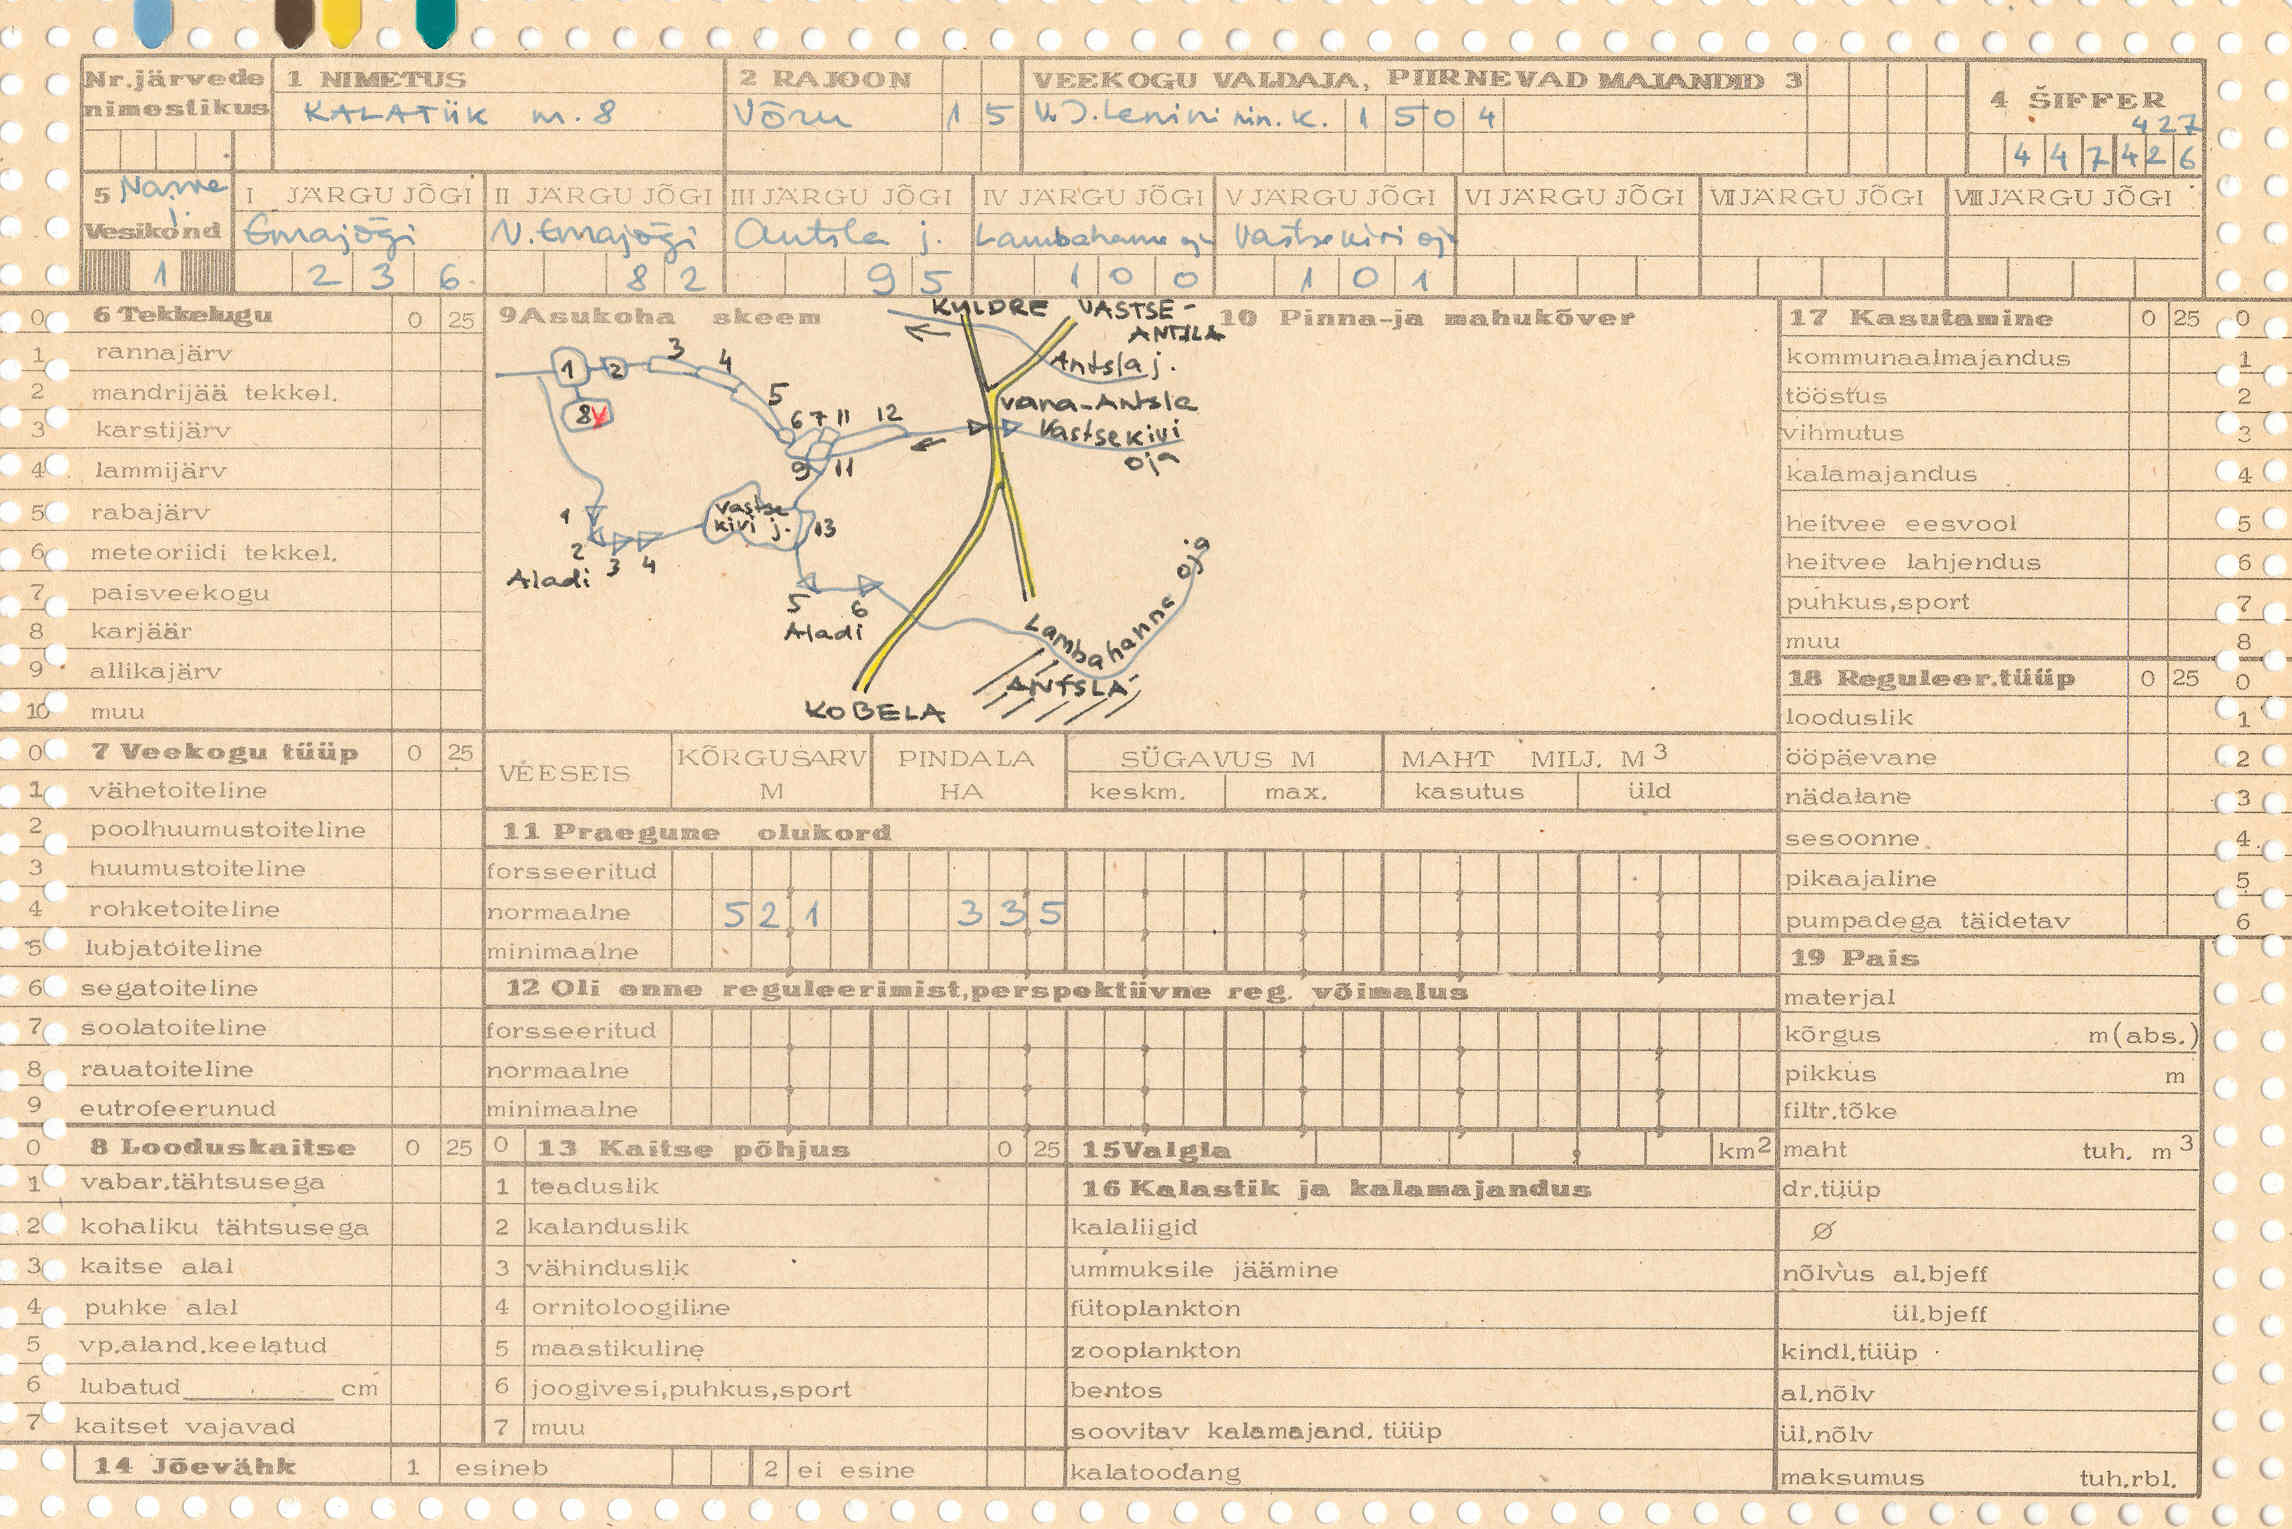 Nr.järvede 1 NIMETUS 2 RAJOON VEEKOGU VALDAJA, PIIRNEVAD MAJANDID 3 4 ŠIFFER
nimestikus KALATIIK m. 8 Võru 1 5 V. I. Lenini nim. K. 1 5 0 4 427
4 4 7 4 2 6
5 Narva j. Vesikond I JÄRGU JÕGI II JÄRGU JÕGI III JÄRGU JÕGI IV JÄRGU JÕGI V JÄRGU JÕGI VI JÄRGU JÕGI VII JÄRGU JÕGI VIII JÄRGU JÕGI
Emajõgi V. Emajõgi Antsla j. Lambahanna oja Vastsekivi oja
1 2 3 6 8 2 9 5 1 0 0 1 0 1
0 6 Tekkelugu 0 25
1 rannajärv
2 mandrijää tekkel.
3 karstijärv
4 lammijärv
5 rabajärv
6 meteoriidi tekkel.
7 paisveekogu
8 karjäär
9 allikajärv
10 muu
0 7 Veekogu tüüp 0 25
1 vähetoiteline
2 poolhuumustoiteline
3 huumustoiteline
4 rohketoiteline
5 lubjatoiteline
6 segatoiteline
7 soolatoiteline
8 rauatoiteline
9 eutrofeerunud
0 8 Looduskaitse 0 25
1 vabar.tähtsusega
2 kohaliku tähtsusega
3 kaitse alal
4 puhke alal
5 vp.aland.keelatud
6 lubatud cm
7 kaitset vajavad
14 Jõevähk 1 esineb 2 ei esine
9 Asukoha skeem 10 Pinna-ja mahukõver
KULDRE VASTSE-
ANTSLA
Antsla j.
1 2 3 4 5 6 7 11 12
8
vana-Antsla
Vastsekivi
oja
9 11
vastse
kivi j. 13
1
2 3 4
Aladi
5 6
Aladi
Lambahanna oja
ANTSLA
KOBELA
VEESEIS KÕRGUSARV M PINDALA HA SÜGAVUS M MAHT MILJ. M3
keskm. max. kasutus üld
11 Praegune olukord
forsseeritud
normaalne 5 2 1 3 3 5
minimaalne
12 Oli enne reguleerimist,perspektiivne reg. võimalus
forsseeritud
normaalne
minimaalne
0 13 Kaitse põhjus 0 25
1 teaduslik
2 kalanduslik
3 vähinduslik
4 ornitoloogiline
5 maastikuline
6 joogivesi,puhkus,sport
7 muu
15 Valgla km2
16 Kalastik ja kalamajandus
kalaliigid
ummuksile jäämine
fütoplankton
zooplankton
bentos
soovitav kalamajand. tüüp
kalatoodang
17 Kasutamine 0 25 0
kommunaalmajandus 1
tööstus 2
vihmutus 3
kalamajandus 4
heitvee eesvool 5
heitvee lahjendus 6
puhkus,sport 7
muu 8
18 Reguleer.tüüp 0 25 0
looduslik 1
ööpäevane 2
nädalane 3
sesoonne 4
pikaajaline 5
pumpadega täidetav 6
19 Pais
materjal
kõrgus m(abs.)
pikkus m
filtr.tõke
maht tuh. m3
dr.tüüp
Ø
nõlvus al.bjeff
ül.bjeff
kindl.tüüp
al.nõlv
ül.nõlv
maksumus tuh.rbl.